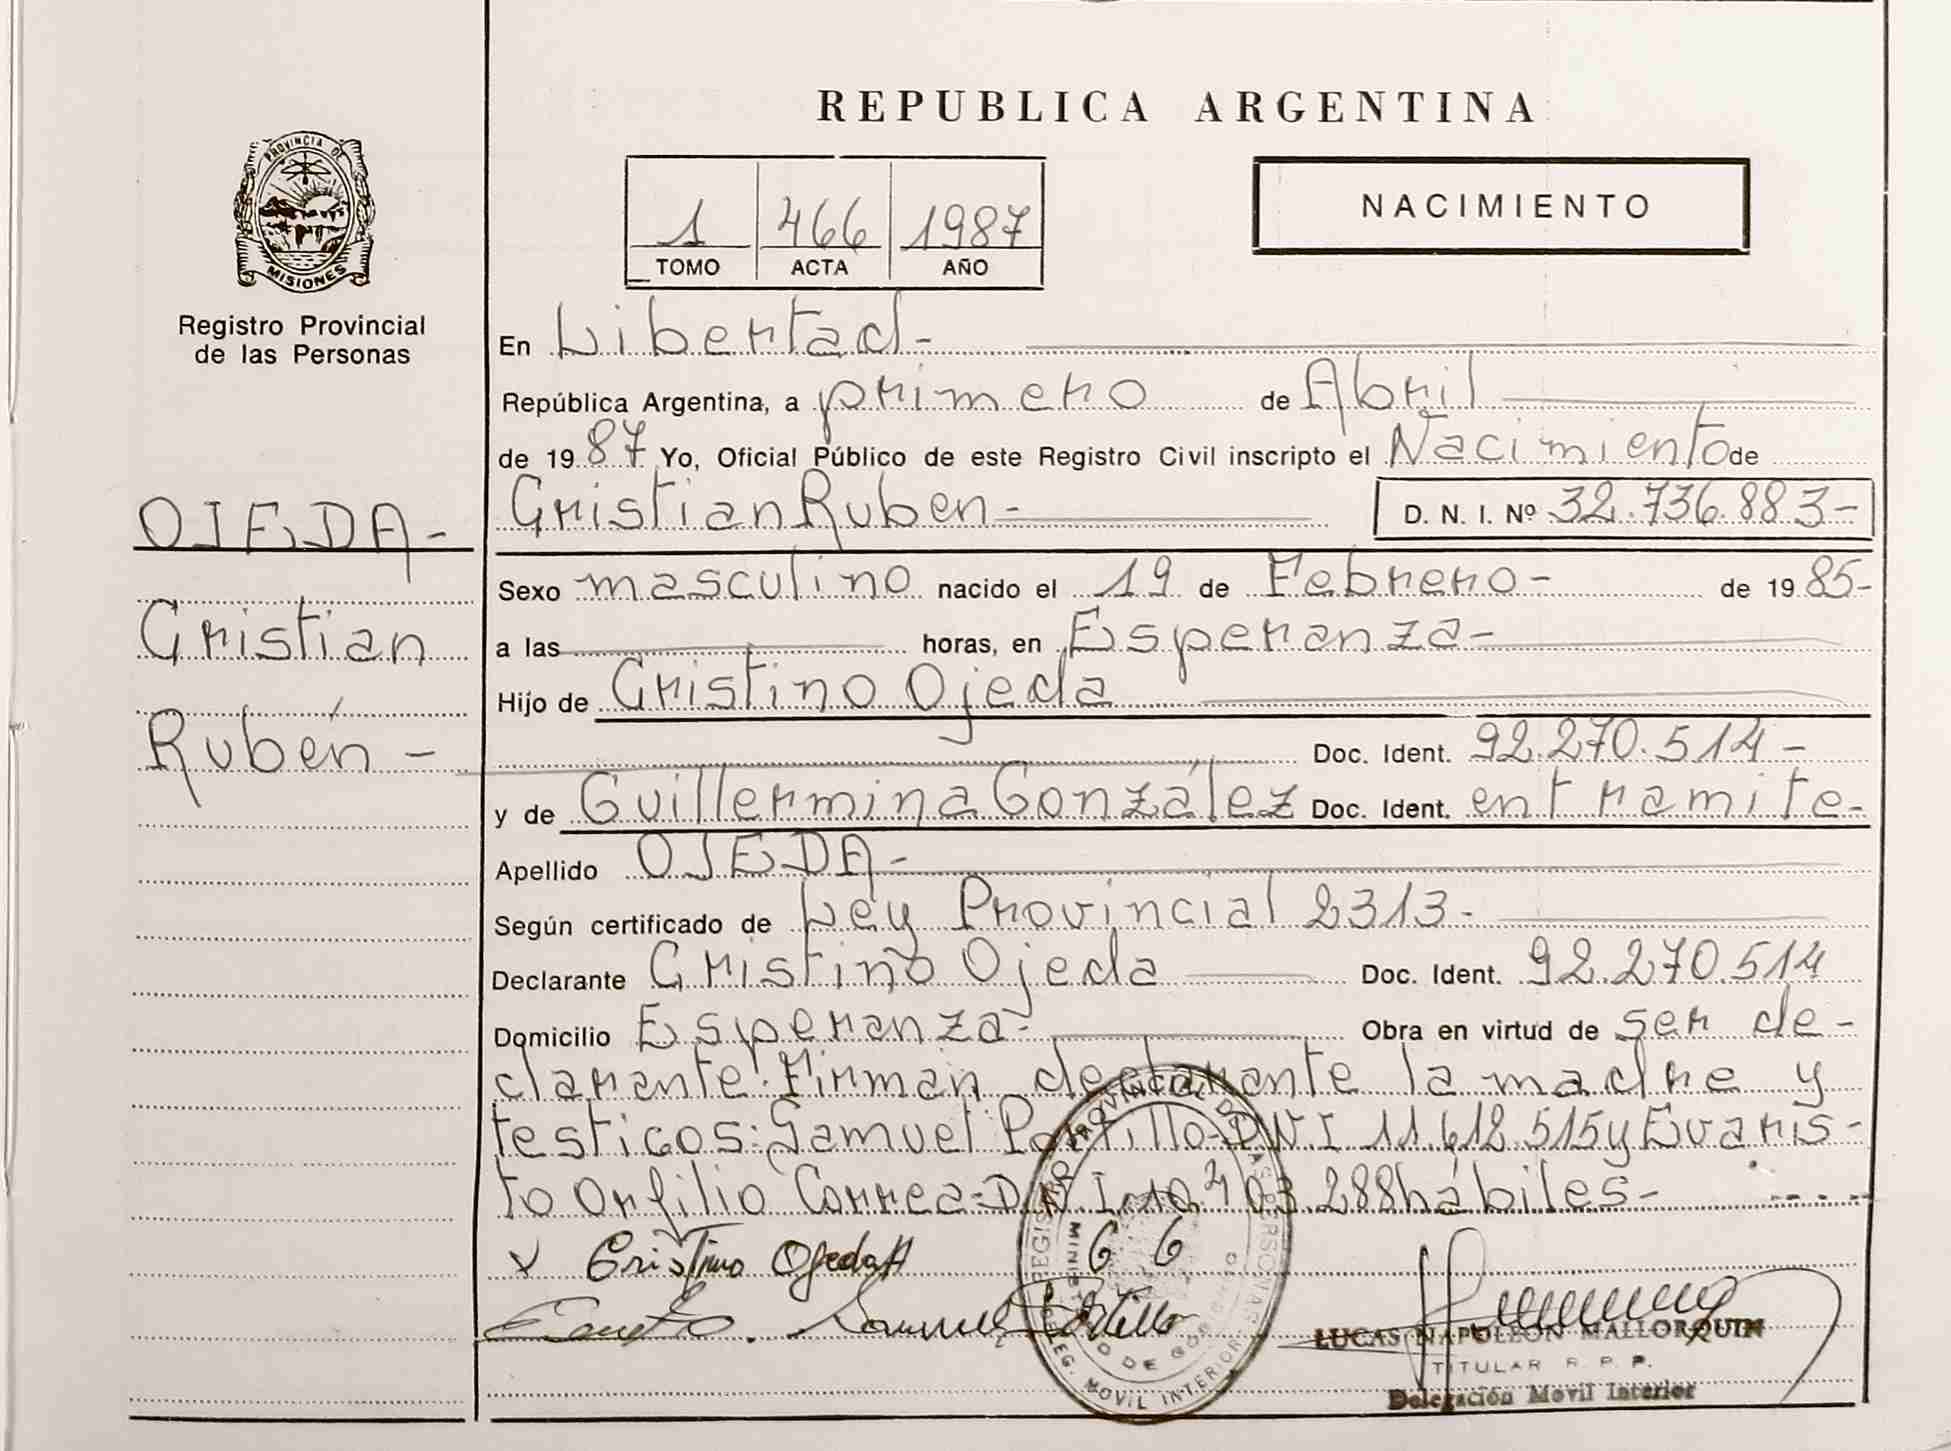 REPUBLICA ARGENTINA
PROVINCIA DE
MISIONES
Registro Provincial
de las Personas
1 466 1987
TOMO ACTA AÑO
NACIMIENTO
En Libertad-
República Argentina, a primero de Abril
de 1987 Yo, Oficial Público de este Registro Civil inscripto el Nacimiento de
Cristian Ruben- D. N. I. Nº 32.736.883-
OJEDA-
Cristian
Rubén-
Sexo masculino nacido el 19 de Febrero- de 1985-
a las horas, en Esperanza-
Hijo de Cristino Ojeda
Doc. Ident. 92.270.514-
y de Guillermina González Doc. Ident. en tramite-
Apellido OJEDA-
Según certificado de Ley Provincial 2313-
Declarante Cristino Ojeda Doc. Ident. 92.270.514
Domicilio Esperanza- Obra en virtud de ser de-
clarante. Firman declarante la madre y
testigos: Samuel Portillo-DNI 11.612.515 y Evaris-
to Orfilio Correa-DNI.10.403.288 hábiles-
Cristino Ojeda G G
Samuel Portillo
REGISTRO PROVINCIAL DE LAS PERSONAS
MINISTERIO DE GOBIERNO
DELEG. MOVIL INTERIOR
LUCAS NAPOLEON MALLORQUIN
TITULAR R. P. P.
Delegación Movil Interior